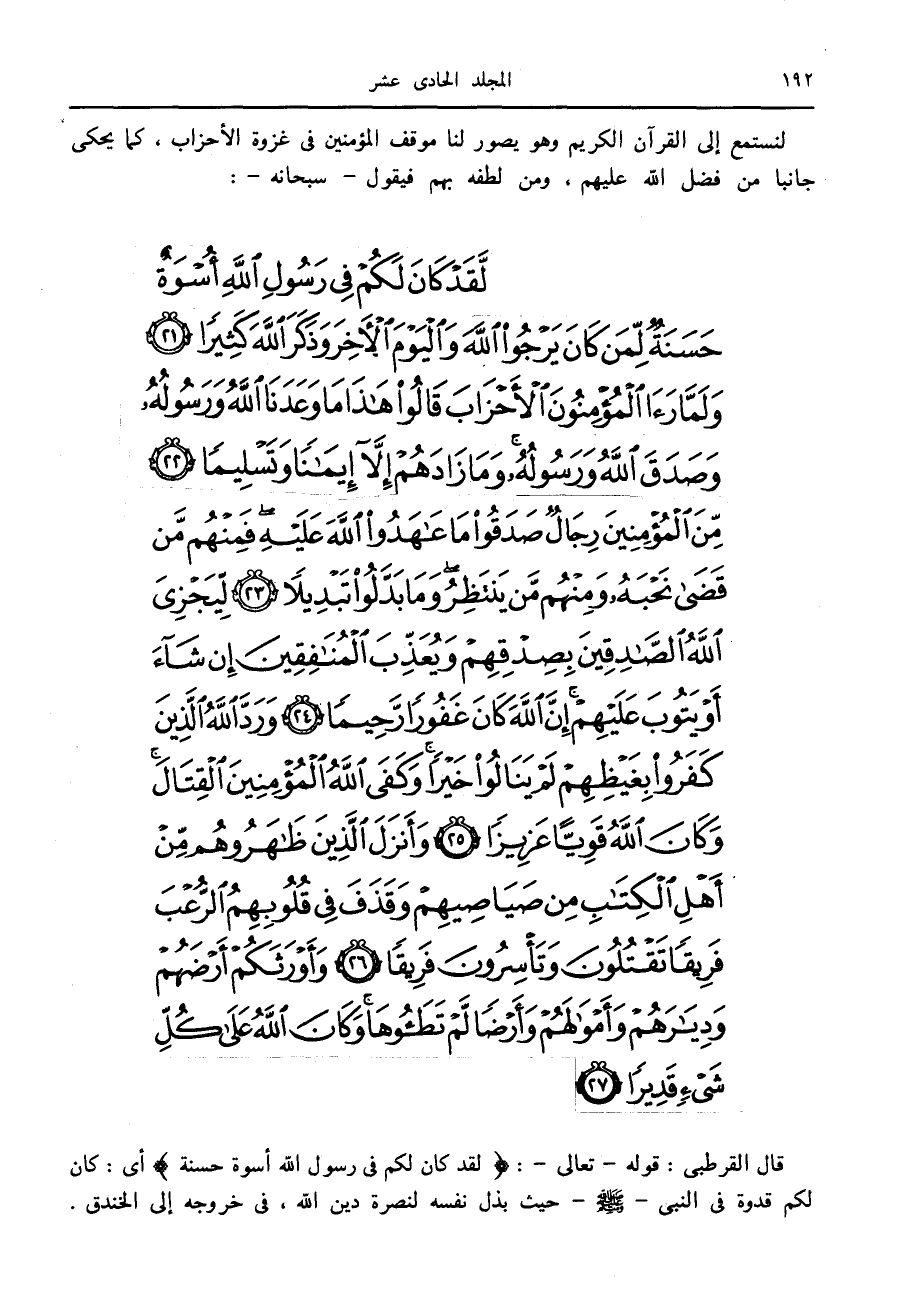 ١٩٢ المجلد الحادى عشر
لنستمع إلى القرآن الكريم وهو يصور لنا موقف المؤمنين فى غزوة الأحزاب ، كما يحكى
جانبا من فضل الله عليهم ، ومن لطفه بهم فيقول – سبحانه – :
لَّقَدْ كَانَ لَكُمْ فِى رَسُولِ ٱللَّهِ أُسْوَةٌ
حَسَنَةٌ لِّمَن كَانَ يَرْجُوا۟ ٱللَّهَ وَٱلْيَوْمَ ٱلْأَخِرَ وَذَكَرَ ٱللَّهَ كَثِيرًا ﴿٢١﴾
وَلَمَّا رَءَا ٱلْمُؤْمِنُونَ ٱلْأَحْزَابَ قَالُوا۟ هَٰذَا مَا وَعَدَنَا ٱللَّهُ وَرَسُولُهُۥ
وَصَدَقَ ٱللَّهُ وَرَسُولُهُۥ ۚ وَمَا زَادَهُمْ إِلَّآ إِيمَٰنًا وَتَسْلِيمًا ﴿٢٢﴾
مِّنَ ٱلْمُؤْمِنِينَ رِجَالٌ صَدَقُوا۟ مَا عَٰهَدُوا۟ ٱللَّهَ عَلَيْهِ ۖ فَمِنْهُم مَّن
قَضَىٰ نَحْبَهُۥ وَمِنْهُم مَّن يَنتَظِرُ ۖ وَمَا بَدَّلُوا۟ تَبْدِيلًا ﴿٢٣﴾ لِّيَجْزِىَ
ٱللَّهُ ٱلصَّٰدِقِينَ بِصِدْقِهِمْ وَيُعَذِّبَ ٱلْمُنَٰفِقِينَ إِن شَآءَ
أَوْ يَتُوبَ عَلَيْهِمْ ۚ إِنَّ ٱللَّهَ كَانَ غَفُورًا رَّحِيمًا ﴿٢٤﴾ وَرَدَّ ٱللَّهُ ٱلَّذِينَ
كَفَرُوا۟ بِغَيْظِهِمْ لَمْ يَنَالُوا۟ خَيْرًا ۚ وَكَفَى ٱللَّهُ ٱلْمُؤْمِنِينَ ٱلْقِتَالَ ۚ
وَكَانَ ٱللَّهُ قَوِيًّا عَزِيزًا ﴿٢٥﴾ وَأَنزَلَ ٱلَّذِينَ ظَٰهَرُوهُم مِّنْ
أَهْلِ ٱلْكِتَٰبِ مِن صَيَاصِيهِمْ وَقَذَفَ فِى قُلُوبِهِمُ ٱلرُّعْبَ
فَرِيقًا تَقْتُلُونَ وَتَأْسِرُونَ فَرِيقًا ﴿٢٦﴾ وَأَوْرَثَكُمْ أَرْضَهُمْ
وَدِيَٰرَهُمْ وَأَمْوَٰلَهُمْ وَأَرْضًا لَّمْ تَطَـُٔوهَا ۚ وَكَانَ ٱللَّهُ عَلَىٰ كُلِّ
شَىْءٍ قَدِيرًا ﴿٢٧﴾
قال القرطبى : قوله – تعالى – : ﴿ لقد كان لكم فى رسول الله أسوة حسنة ﴾ أى : كان
لكم قدوة فى النبى – ﷺ – حيث بذل نفسه لنصرة دين الله ، فى خروجه إلى الخندق .